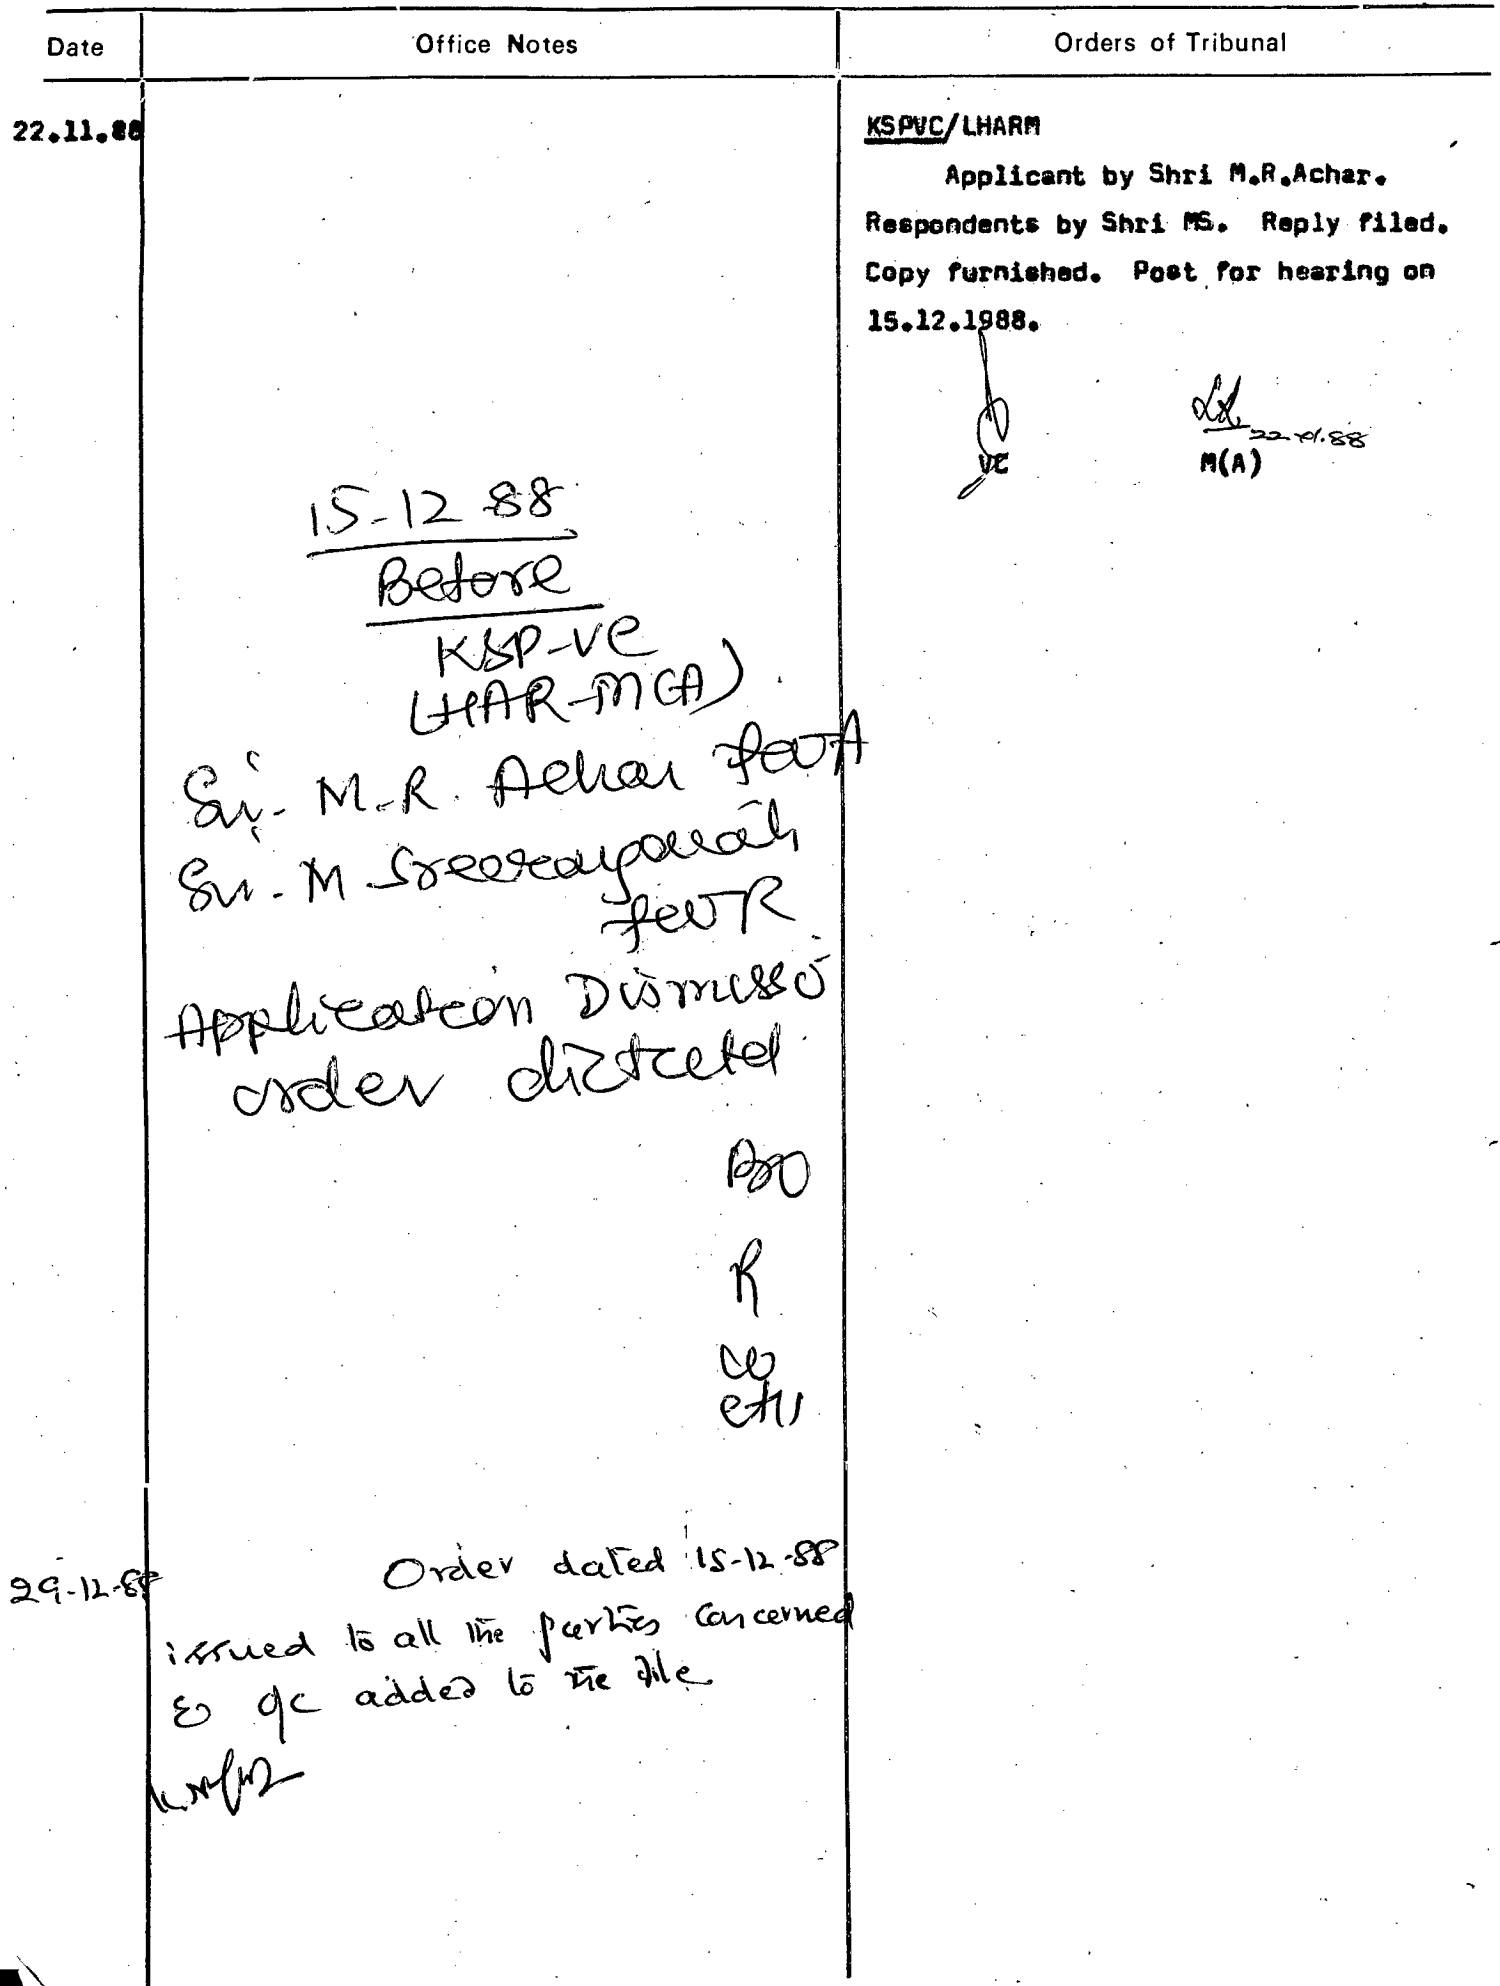 Date Office Notes Orders of Tribunal
22.11.88
KSPVC/LHARM
Applicant by Shri M.R.Achar.
Respondents by Shri MS. Reply filed.
Copy furnished. Post for hearing on
15.12.1988.
22.11.88
VC M(A)
15-12-88
Before
KSP-VC
LHAR-M(A)
Sri. M.R. Achar for A
Sri. M
for R
Application Dismissed
order dictated
R
29-12-88 Order dated 15-12-88
issued to all the parties concerned
& o/c added to the file